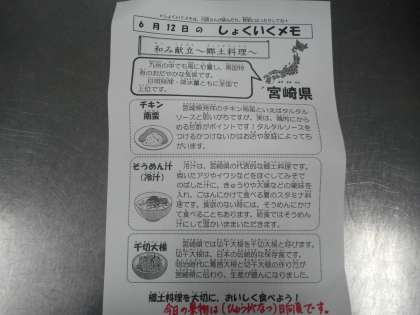 6月12日の しょくいくメモ
和み献立～郷土料理～
九州の中でも南に位置し、南国特
有のおだやかな気候です。
日照時間・降水量ともに全国で
上位です。
宮崎県
チキン
南蛮
宮崎県発祥のチキン南蛮といえばタルタル
ソースと思いがちですが、実は、鶏肉にから
める甘酢がポイントです！タルタルソースを
つけるかつけないかはお店や家庭によってち
がいます。
そうめん汁
（冷汁）
冷汁は、宮崎県の代表的な郷土料理です。
焼いたアジやイワシなどをほぐしてみそで
のばした汁に、きゅうりや大葉などの薬味を
入れ、ごはんにかけて食べる夏のスタミナ料
理です。食欲のない時には、そうめんにかけ
て食べることもあります。給食ではそうめん
汁にして温かいままいただきます。
千切大根
宮崎県では切干大根を千切大根と呼びます。
切干大根は、日本の伝統的な保存食です。
明治時代に
宮崎に伝わり、生産が盛んになりました。
郷土料理を大切に、おいしく食べよう！
今日の果物は(ひゅうがなつ)日向夏です。